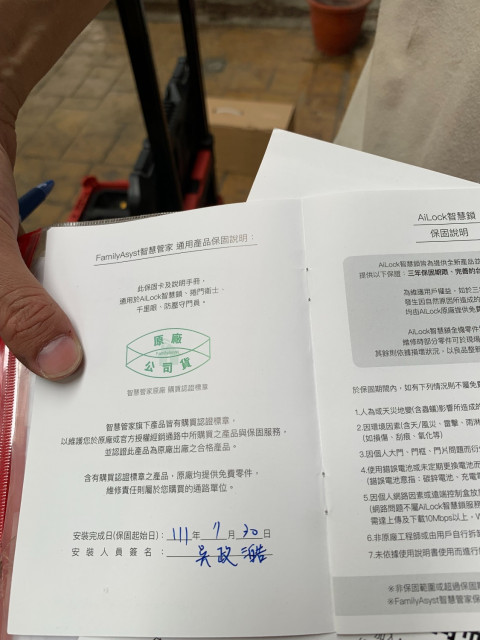 FamilyAsyst智慧管家 通用產品保固說明：
此保固卡及說明手冊，
適用於AiLock智慧鎖、捲門衛士、
千里眼、防壓守門員。
原廠
公司貨
智慧管家原廠 購買認證標章
智慧管家旗下產品皆有購買認證標章，
以維護您於原廠或官方授權經銷通路中所購買之產品與保固服務，
並認證此產品為原廠出廠之合格產品。
含有購買認證標章之產品，原廠均提供免費零件，
維修責任則屬於您購買的通路單位。
安裝完成日(保固起始日)：111年 7 月 30 日
安裝人員簽名：吳政
AiLock智慧鎖
保固說明
AiLock智慧鎖皆為提供全新產品
提供以下保證，三年保固期限，完善的
為維護用戶權益，如於三
發生因自然原因所造成的
均由AiLock原廠提供免費
AiLock智慧鎖全機零件
維修時部分零件可於現場
其餘則依據損壞狀況，以良品整
於保固期間內，如有下列情況則不屬免
1.人為或天災地變(含蟲蟻)影響所造成的
2.因環境因素(含天/風災、雷擊、雨淋
(如損傷、刮痕、氧化等)
3.因個人大門、門框、門片問題而衍
4.使用錯誤電池或未定期更換電池而
(錯誤電池意指：碳鋅電池、充電
5.因個人網路因素或遠端控制盒放
(網路問題不屬AiLock智慧鎖服務
需達上傳及下載10Mbps以上，W
6.非原廠工程師或由用戶自行拆
7.未依據使用說明書使用而進行
※非保固範圍或超過保固
※FamilyAsyst智慧管家保